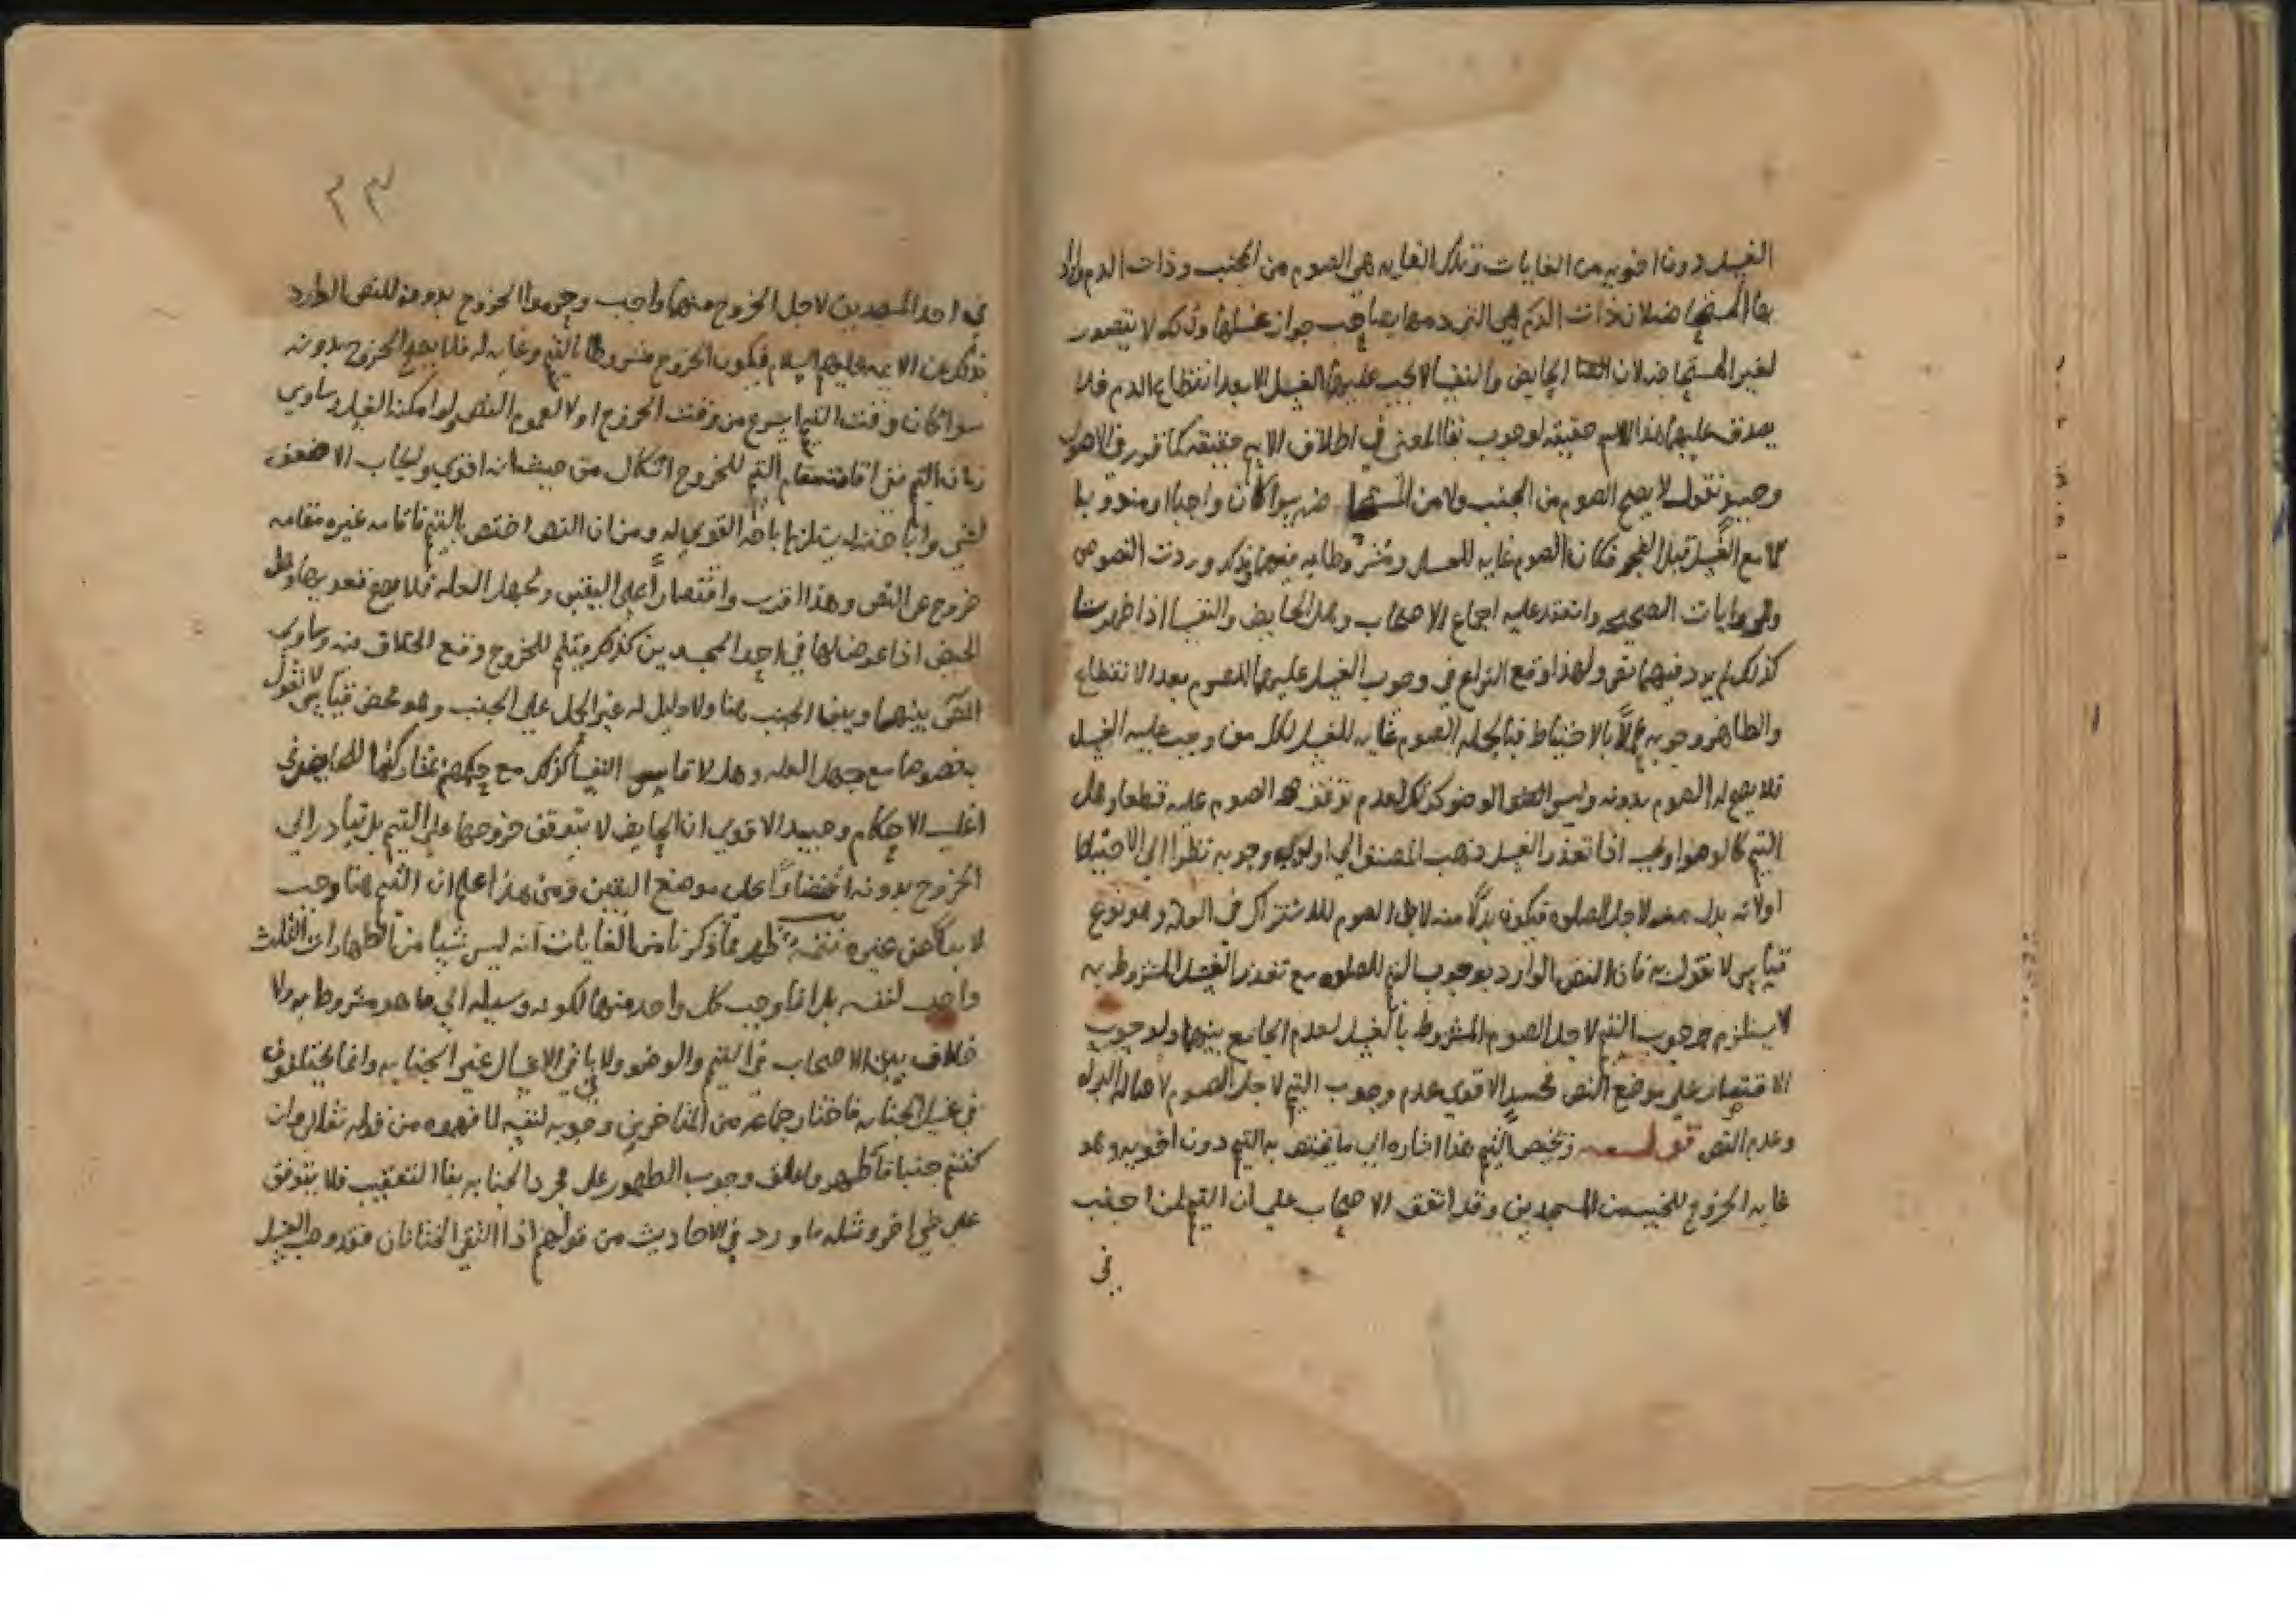 الغسل دون اخويه من الغايات وتلك الغايه هي الصوم من الجنب وذات الدم واراد
بها المستحاضه لان ذات الدم هي التي دمها يصاحب جواز غسلها وذلك لا يتصور
لغير المستحاضه لان الحايض والنفسا لا يجب عليهما الغسل الا بعد انقطاع الدم فلا
يصدق عليهما هذا الاسم حقيقه لوجوب بقا المعنى في اطلاق الاسم حقيقه كما قرر في الاصول
وحينيذ نقول لا يصح الصوم من الجنب ولا من المستحاضه سوا كان واجبا او مندوبا
الا مع الغسل قبل الفجر فكان الصوم غايه للغسل ومشروطا به فيهما بذلك وردت النصوص
والروايات الصحيحه وانعقد عليه اجماع الاصحاب وهل الحايض والنفسا اذا طهرتا
كذلك لم يرد فيهما نص ولهذا وقع النزاع في وجوب الغسل عليهما للصوم بعد الانقطاع
والظاهر وجوبه عملاً بالاحتياط فبالجمله الصوم غايه للغسل لكل من وجب عليه الغسل
فلا يصح له الصوم بدونه وليس الوضو كذلك لعدم توقف الصوم عليه قطعا وهل
التيمم كالوضو او يجب اذا تعذر الغسل ذهب المصنف الي اولويه وجوبه نظرا الي الاحتياط
اولانه بدل منه لاجل الصلوه فيكون بدلا منه لاجل الصوم للاشتراك في العله وهو نوع
قياس لا نقول به فان النص الوارد بوجوب التيمم للصلوه مع تعذر الغسل المشروط به
لا يستلزم وجوب التيمم لاجل الصوم المشروط بالغسل لعدم الجامع بينهما ولوجوب
الاقتصار علي موضع النص فحينيذ الاقوي عدم وجوب التيمم لاجل الصوم لاصاله البراه
وعدم النص قوله ويختص التيمم هذا اشاره الي ما يختص به التيمم دون اخويه وهو
غايه الخروج للجنب من المسجدين وقد اتفق الاصحاب علي ان التيمم لمن اجنب
في
٢٣
في احد المسجدين لاجل الخروج منهما واجب وحرموا الخروج بدونه للنص الوارد
بذلك عن الايمه عليهم السلام فيكون الخروج مشروطا بالتيمم وغايه له فلا يصح الخروج بدونه
سوا كان وقت التيمم اسرع من وقت الخروج او لا لعموم النص ولو امكنه الغسل وساوي
زمان التيمم ففي اقامته مقام التيمم للخروج اشكال من حيث انه اقوي وايجاب الاضعف
لشي واباحته به يستلزم اباحه القوي له ومن ان النص اختص بالتيمم فاقامه غيره مقامه
خروج عن النص وهذا اقرب واقتصاراً علي اليقين ولجهل العله فلا يصح تعديتها وهل
الحيض اذا عرض لها في احد المسجدين كذلك فتيمم للخروج وقع الخلاف فيه وساوي
بينهما وبين الجنب هنا ولا دليل له غير الحمل علي الجنب وهو محض قياس لا نقول
به خصوصا مع جهل العله وهل لا قايس النفسا كذلك مع حكمهم بمشاركتها للحايض في
اغلب الاحكام وحينيذ الاقوي ان الحايض لا يتوقف خروجها علي التيمم بل تبادر الي
الخروج بدونه اقتصاراً علي موضع اليقين ومن هذا اعلم ان التيمم هنا وجب
لا بدلا عن غيره تتمه ظهر مما ذكرنا من الغايات انه ليس شيا من الطهارات الثلث
واجب لنفسه بل انما وجب كل واحد منها لكونه وسيله الي ما هو مشروط به ولا
خلاف بين الاصحاب في التيمم والوضو ولا باقي الاغسال غير الجنابه وانما يختلفون
في غسل الجنابه فاختار جماعه من المتاخرين وجوبه لنفسه لما فهموه من قوله تعالى وان
كنتم جنبا فاطهروا علق وجوب الطهور علي مجرد الجنابه بفا التعقيب فلا يتوقف
علي شي اخر ومثله ما ورد في الاحاديث من قولهم اذا التقي الختانان فقد وجب الغسل